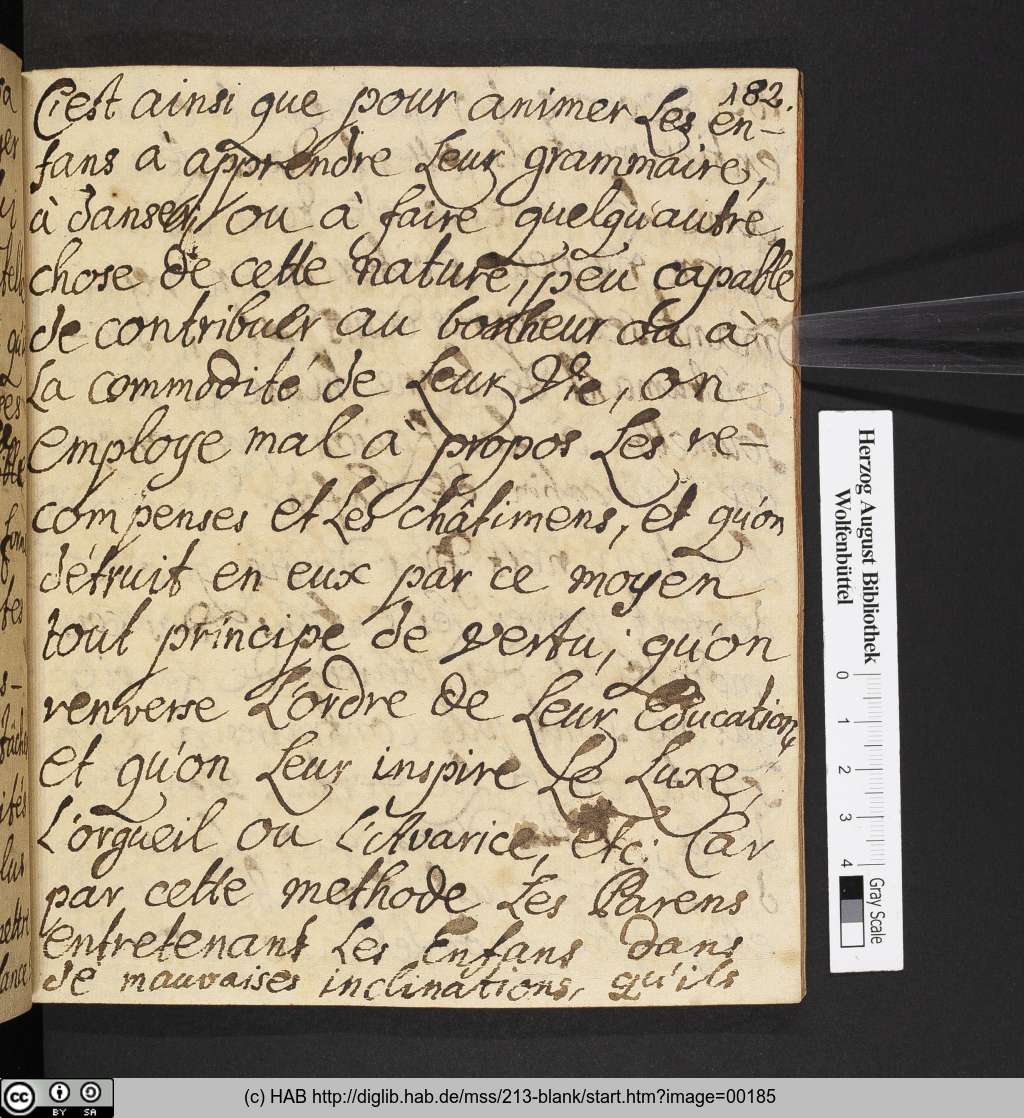 182.
C'est ainsi que pour animer Les en-
fans à apprendre Leur grammaire,
à danser, ou à faire quelqu'autre
chose de cette nature, peu capable
de contribuer au bonheur ou à
La commodité de Leur Vie, on
employe mal à propos Les re-
compenses et Les châtimens, et qu'on
détruit en eux par ce moyen
tout principe de vertu; qu'on
renverse L'ordre de Leur Education,
et qu'on Leur inspire Le Luxe,
L'orgueil ou L'Avarice, etc. Car
par cette methode Les Parens
entretenant Les Enfans dans
de mauvaises inclinations, qu'ils
Herzog August Bibliothek
Wolfenbüttel
0 1 2 3 4
Gray Scale
cc BY SA
(c) HAB http://diglib.hab.de/mss/213-blank/start.htm?image=00185